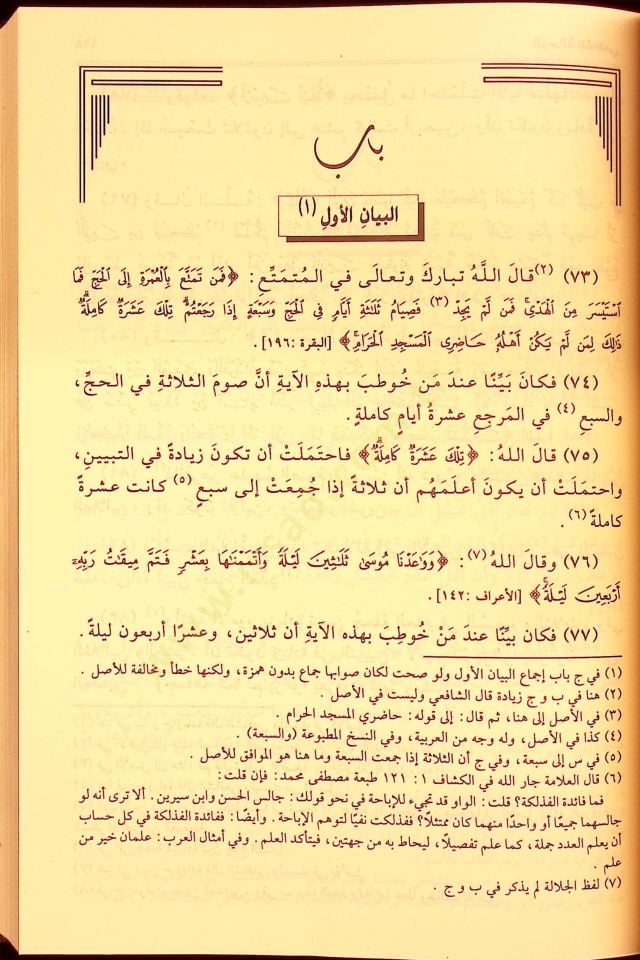 باب
البيانِ الأولِ (١)
(٧٣) (٢)قالَ اللَّهُ تباركَ وتعالَى في المُتمتِّعِ: ﴿فَمَن تَمَتَّعَ بِالْعُمْرَةِ إِلَى الْحَجِّ فَمَا
اسْتَيْسَرَ مِنَ الْهَدْيِ فَمَن لَّمْ يَجِدْ (٣) فَصِيَامُ ثَلَاثَةِ أَيَّامٍ فِي الْحَجِّ وَسَبْعَةٍ إِذَا رَجَعْتُمْ تِلْكَ عَشَرَةٌ كَامِلَةٌ
ذَلِكَ لِمَن لَّمْ يَكُنْ أَهْلُهُ حَاضِرِي الْمَسْجِدِ الْحَرَامِ﴾ [البقرة: ١٩٦].
(٧٤) فكانَ بَيِّنًا عندَ مَن خُوطبَ بهذهِ الآيةِ أنَّ صومَ الثلاثةِ في الحجِّ،
والسبعِ (٤) في المَرجعِ عشرةُ أيامٍ كاملةٍ.
(٧٥) قالَ اللهُ: ﴿تِلْكَ عَشَرَةٌ كَامِلَةٌ﴾ فاحتمَلَتْ أن تكونَ زيادةً في التبيينِ،
واحتملَتْ أن يكونَ أعلمَهُم أن ثلاثةً إذا جُمِعَتْ إلى سبعٍ (٥) كانت عشرةً
كاملةً (٦).
(٧٦) وقالَ اللهُ (٧): ﴿وَوَاعَدْنَا مُوسَىٰ ثَلَاثِينَ لَيْلَةً وَأَتْمَمْنَاهَا بِعَشْرٍ فَتَمَّ مِيقَاتُ رَبِّهِ
أَرْبَعِينَ لَيْلَةً﴾ [الأعراف: ١٤٢].
(٧٧) فكان بيِّنًا عندَ مَنْ خُوطِبَ بهذه الآيةِ أن ثلاثين، وعشرًا أربعون ليلةً.
(١) في ج باب إجماع البيان الأول ولو صحت لكان صوابها جماع بدون همزة، ولكنها خطأ ومخالفة للأصل.
(٢) هنا في ب و ج زيادة قال الشافعي وليست في الأصل.
(٣) في الأصل إلى هنا، ثم قال: إلى قوله: حاضري المسجد الحرام.
(٤) كذا في الأصل، وله وجه من العربية، وفي النسخ المطبوعة (والسبعة).
(٥) في س إلى سبعة، وفي ج أن الثلاثة إذا جمعت السبعة وما هنا هو الموافق للأصل.
(٦) قال العلامة جار الله في الكشاف ١: ١٢١ طبعة مصطفى محمد: فإن قلت:
فما فائدة الفذلكة؟ قلت: الواو قد تجيء للإباحة في نحو قولك: جالس الحسن وابن سيرين. ألا ترى أنه لو
جالسهما جميعًا أو واحدًا منهما كان ممتثلًا؟ ففذلكت نفيًا لتوهم الإباحة. وأيضًا: ففائدة الفذلكة في كل حساب
أن يعلم العدد جملة، كما علم تفصيلًا، ليحاط به من جهتين، فيتأكد العلم. وفي أمثال العرب: علمان خير من
علم.
(٧) لفظ الجلالة لم يذكر في ب و ج.